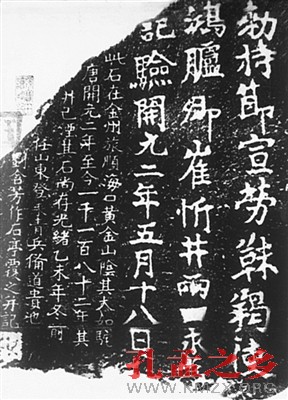 勅持節宣勞靺鞨使
鴻臚卿崔忻井兩口永
記驗開元二年五月十八日
此石在金州旅順海口黃金山陰其大如駝
唐開元二年至今一千一百八十二年其
井已湮其石尚存光緒乙未年冬前
任山東登萊青兵備道貴池
劉含芳作石亭覆之并記
孔孟之乡
WWW.KMZX.ORG